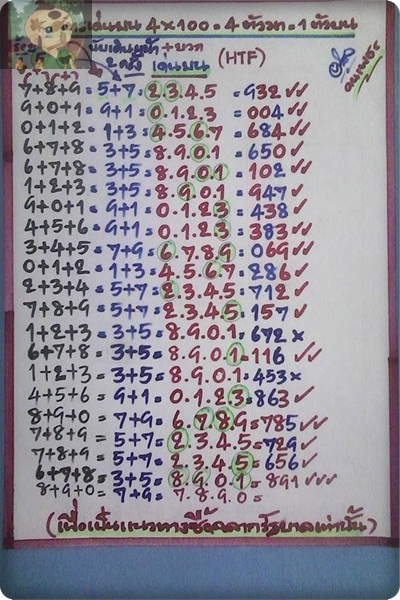 เด่นบน 4×100 = 4 ตัววก = 1 ตัวบน
+ บวก
2 ครั้ง เด่นบน (HTF)
7+8+9 = 5+7 = 2.3.4.5 = 932 ✓✓
9+0+1 = 9+1 = 0.1.2.3 = 004 ✓✓
0+1+2 = 1+3 = 4.5.6.7 = 684 ✓✓
6+7+8 = 3+5 = 8.9.0.1 = 650 ✓
6+7+8 = 3+5 = 8.9.0.1 = 102 ✓✓
1+2+3 = 3+5 = 8.9.0.1 = 947 ✓
9+0+1 = 9+1 = 0.1.2.3 = 438 ✓
4+5+6 = 9+1 = 0.1.2.3 = 383 ✓✓
3+4+5 = 7+9 = 6.7.8.9 = 069 ✓✓
0+1+2 = 1+3 = 4.5.6.7 = 286 ✓
2+3+4 = 5+7 = 2.3.4.5 = 712 ✓
7+8+9 = 5+7 = 2.3.4.5 = 157 ✓
1+2+3 = 3+5 = 8.9.0.1 = 672 ×
6+7+8 = 3+5 = 8.9.0.1 = 116 ✓✓
1+2+3 = 3+5 = 8.9.0.1 = 453 ×
4+5+6 = 9+1 = 0.1.2.3 = 863 ✓
8+9+0 = 7+9 = 6.7.8.9 = 785 ✓✓
7+8+9 = 5+7 = 2.3.4.5 = 729 ✓
7+8+9 = 5+7 = 2.3.4.5 = 656 ✓
6+7+8 = 3+5 = 8.9.0.1 = 891 ✓✓✓
8+9+0 = 7+9 = 7.8.9.0 =
(เพื่อเป็นแนวทางซื้อสลากรัฐบาลเท่านั้น)